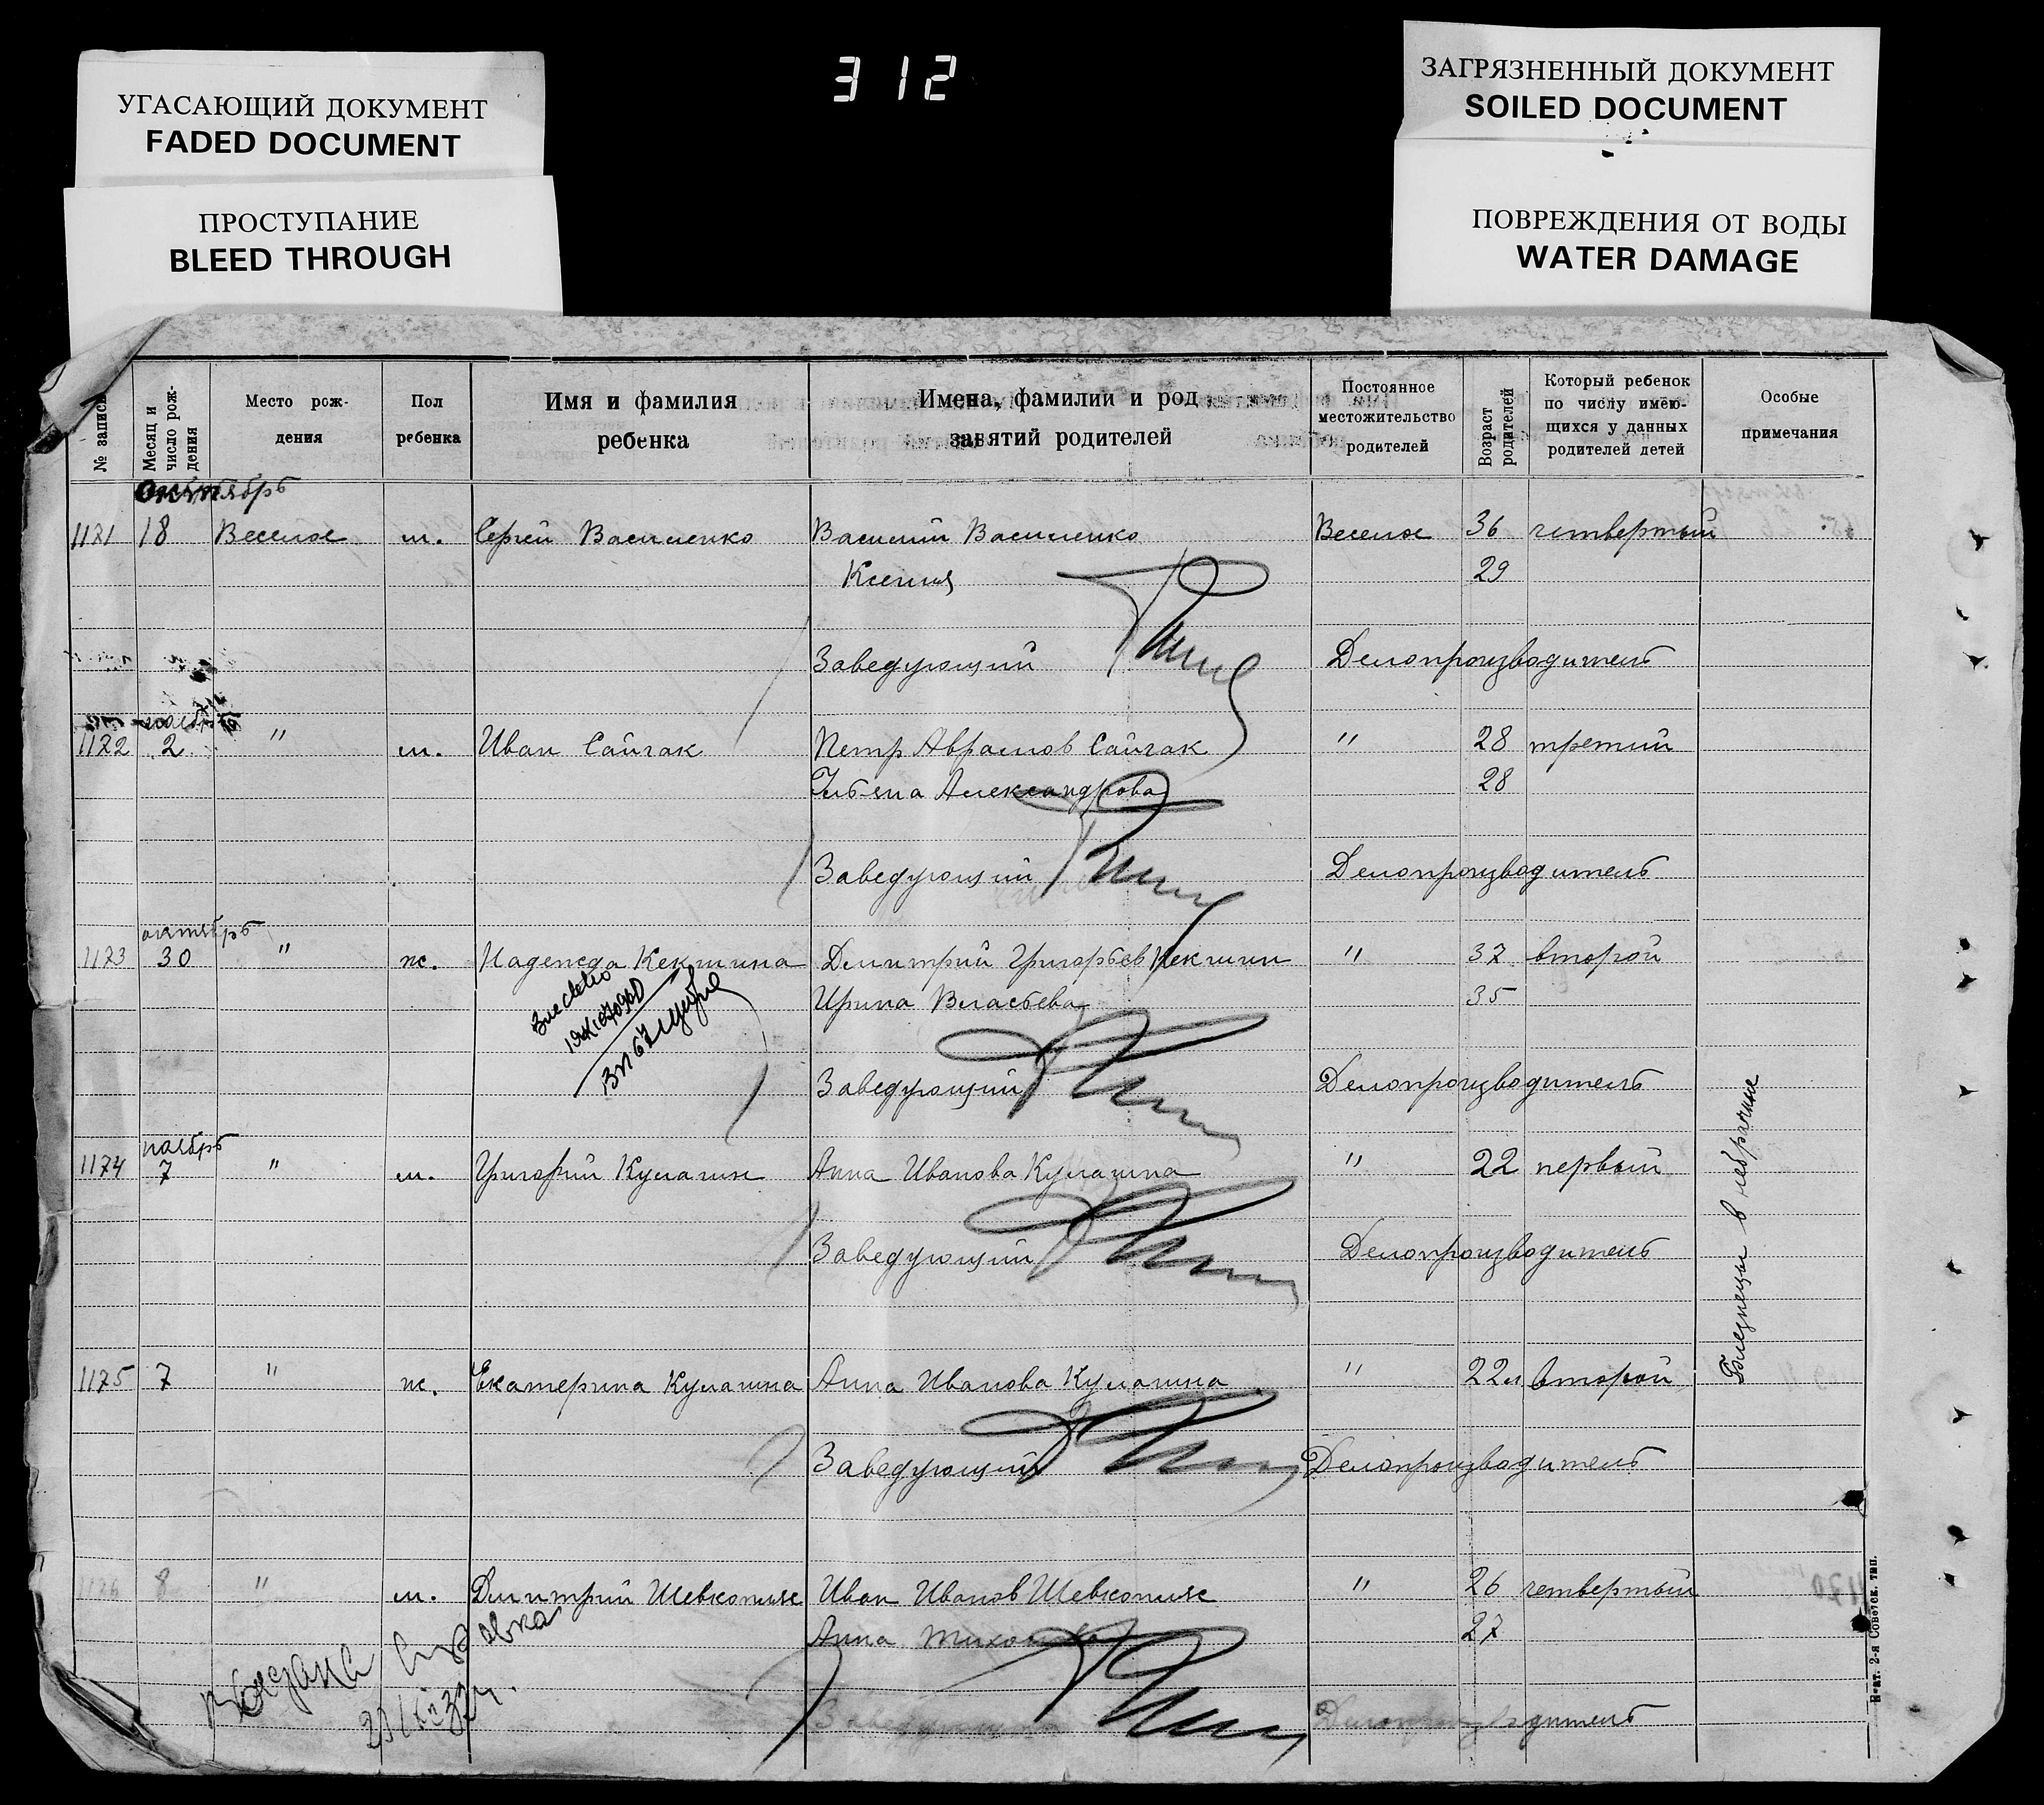 312
УГАСАЮЩИЙ ДОКУМЕНТ
FADED DOCUMENT
ПРОСТУПАНИЕ
BLEED THROUGH
ЗАГРЯЗНЕННЫЙ ДОКУМЕНТ
SOILED DOCUMENT
ПОВРЕЖДЕНИЯ ОТ ВОДЫ
WATER DAMAGE
№ записи
Месяц и число рождения
Место рож-
дения
Пол
ребенка
Имя и фамилия
ребенка
Имена, фамилии и род
занятий родителей
Постоянное
местожительство
родителей
Возраст
родителей
Который ребенок
по числу имею-
щихся у данных
родителей детей
Особые
примечания
октябрь
1171 18 Веселое м. Сергей Василенко Василий Василенко Веселое 36 четвертый
Ксения 29
Заведующий Делопроизводитель
ноябрь
1172 2 " м. Иван Сайгак Петр Аврамов Сайгак " 28 третий
Александрова 28
Заведующий Делопроизводитель
октябрь
1173 30 " ж. Надежда Кекшина Димитрий Григорьев Кекшин " 37 второй
Ирина Власьева 35
Заведующий Делопроизводитель
ноябрь
1174 7 " м. Григорий Кулагин Анна Иванова Кулагина " 22 первый
Заведующий Делопроизводитель
Близнецы в небрачные
1175 7 " ж. Екатерина Кулагина Анна Иванова Кулагина " 22 второй
Заведующий Делопроизводитель
1176 8 " м. Димитрий Шевкопляс Иван Иванов Шевкопляс " 26 четвертый
Анна 27
Заведующий Делопроизводитель
справка
Печат. 2-я Советск. тип.